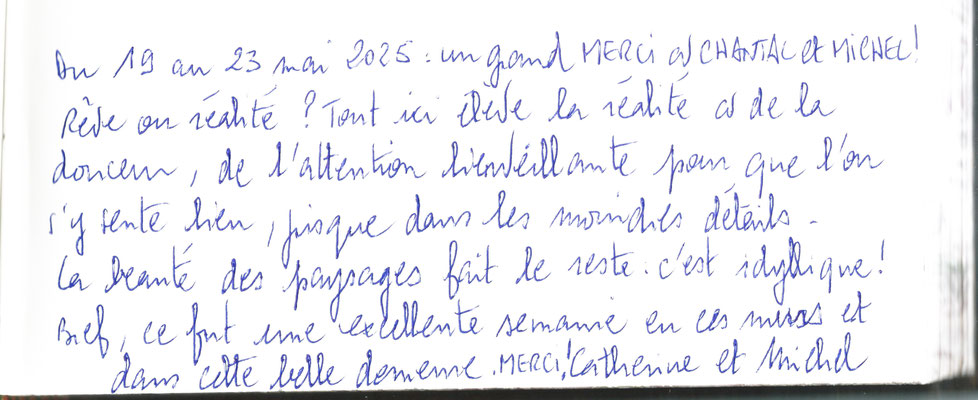 Du 19 au 23 mai 2025 : un grand MERCI à CHANTAL et MICHEL !
Rêve ou réalité ? Tout ici élève la réalité à de la
douceur, de l'attention bienveillante pour que l'on
s'y sente bien, jusque dans les moindres détails.
La beauté des paysages fait le reste. c'est idyllique !
Bref, ce fut une excellente semaine en ces murs et
dans cette belle demeure. MERCI ! Catherine et Michel